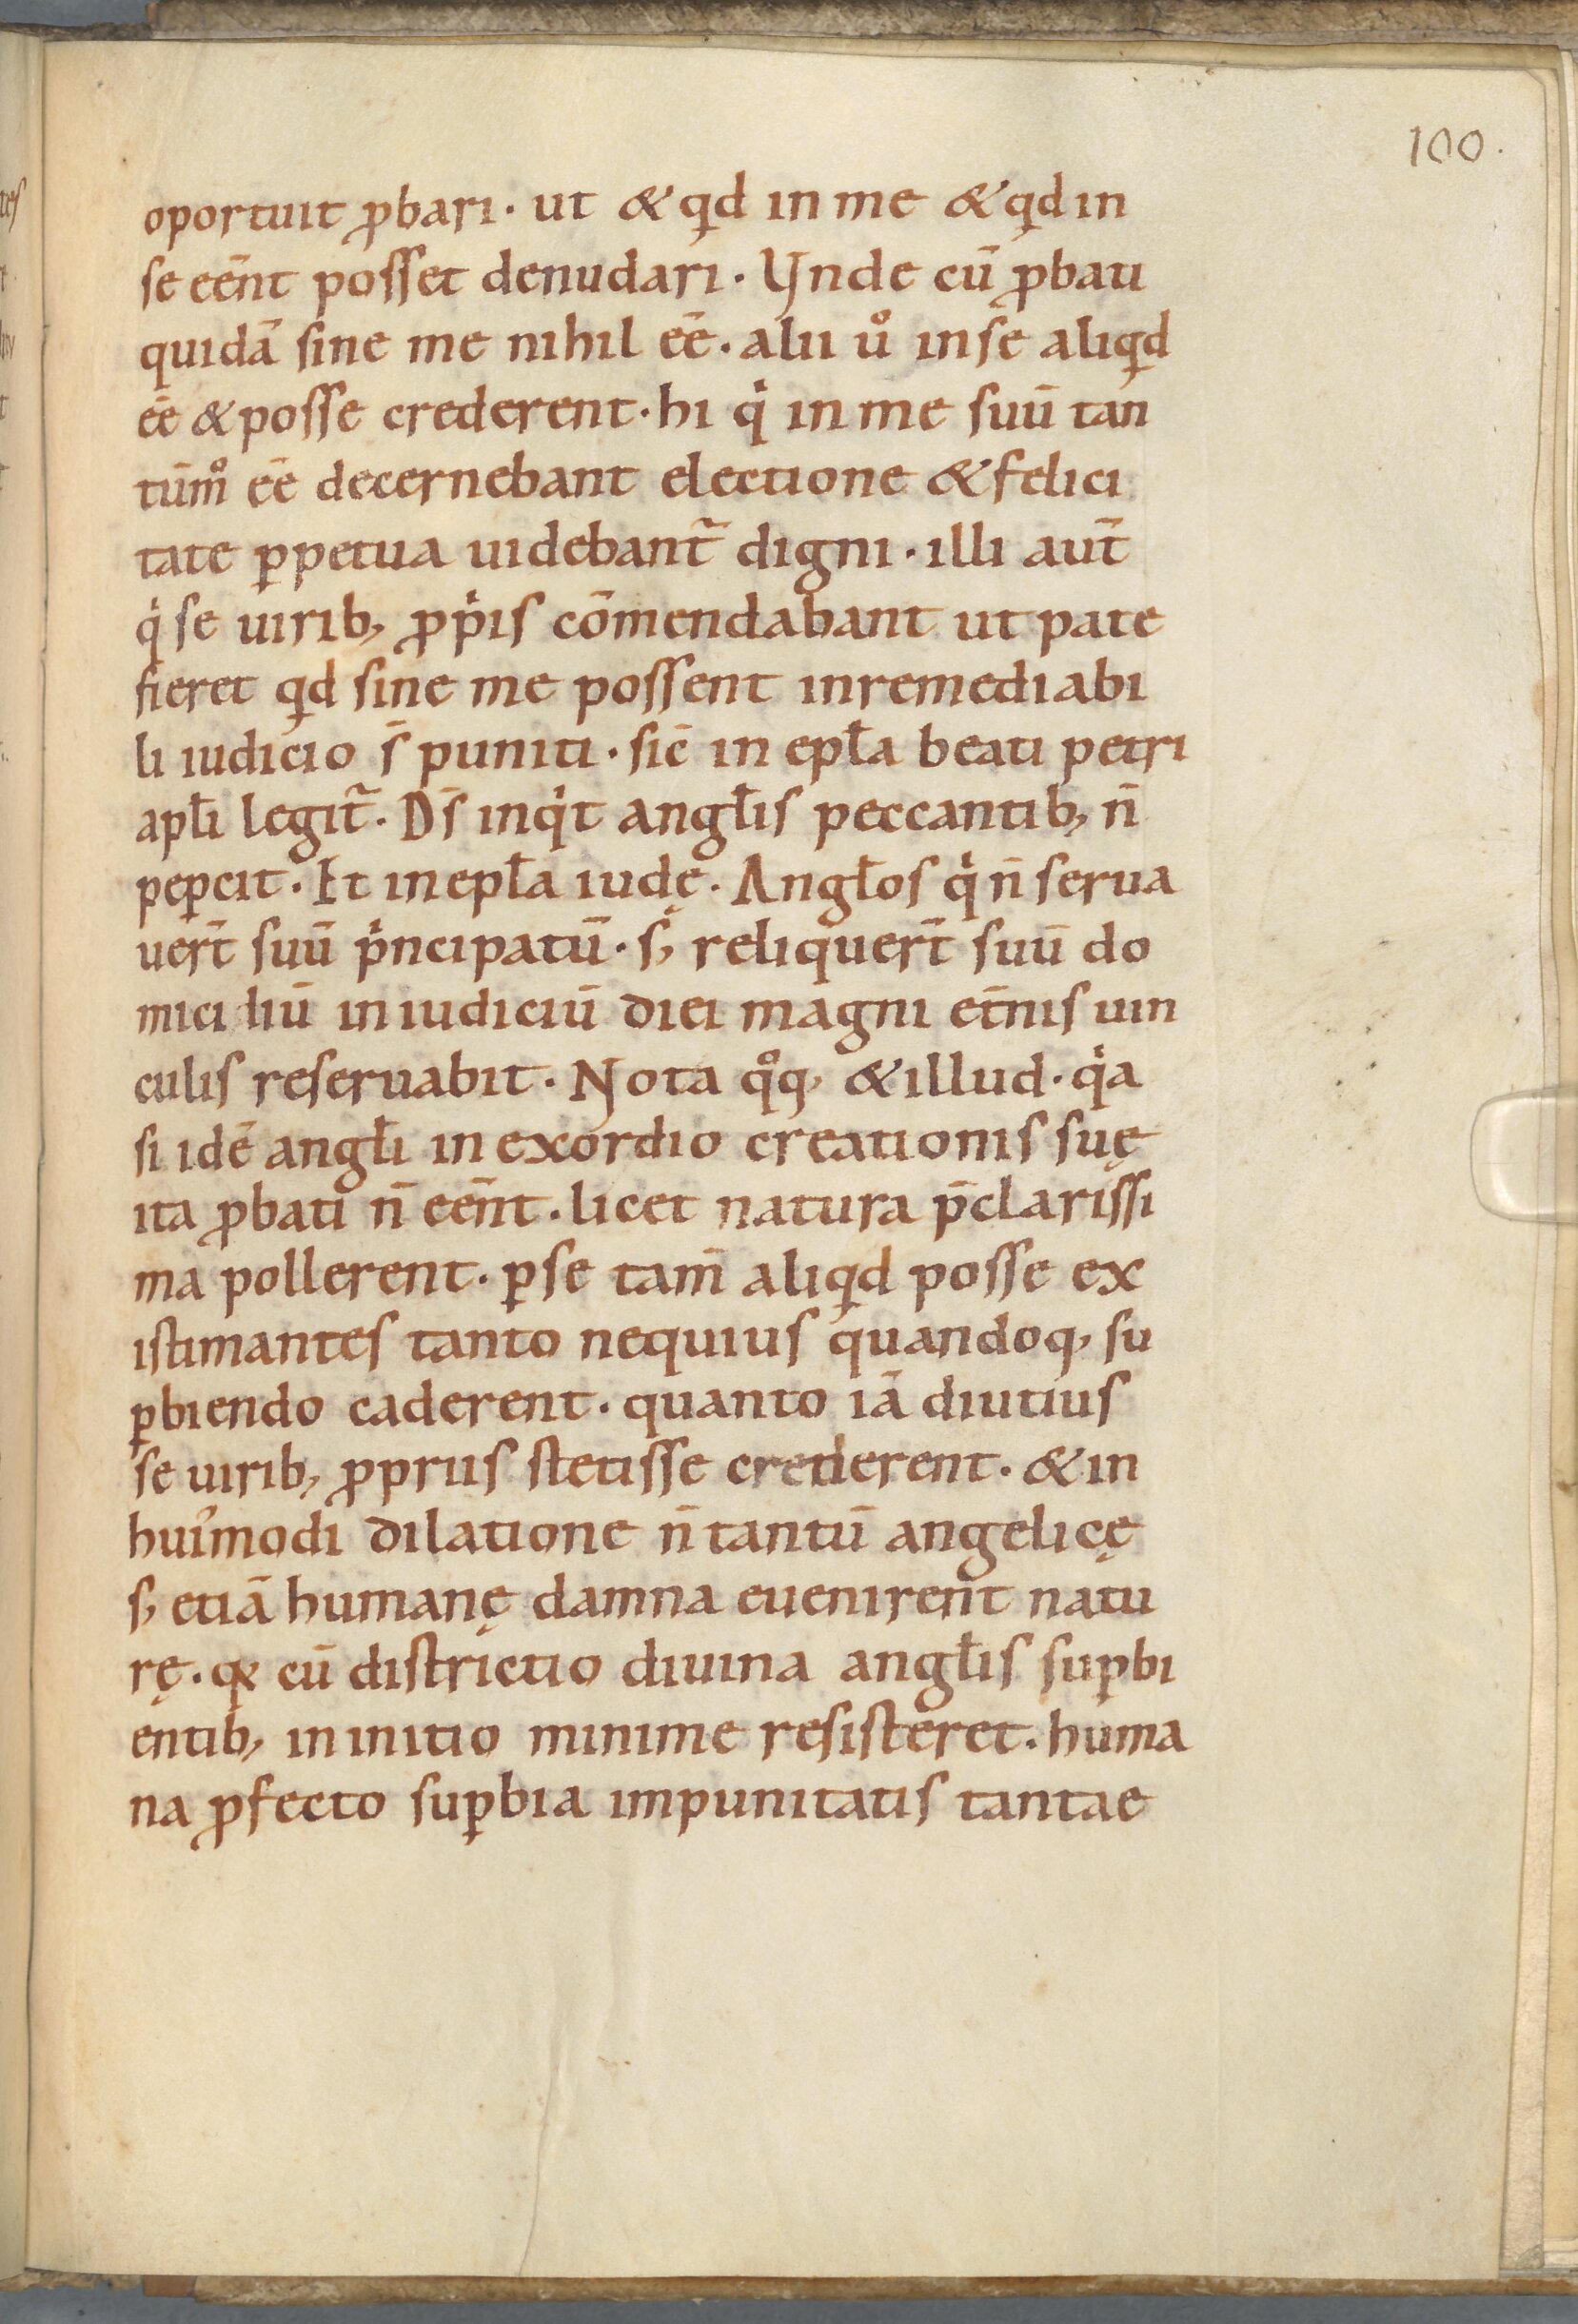 100.
oportuit ꝓbari · ut & qd in me & qd in
se eēnt posset denudari · Vnde cū ꝓbati
quidā sine me nihil eē · alii uͦ in se aliqd
eē & posse crederent · hi qͥ in me suū tan
tūmͦ eē decernebant electione & felici
tate ꝑpetua uidebant᷑ digni · illi aut̄
qͥ se uirib; ꝓpͥis cōmendabant ut pate
fieret qd sine me possent inremediabi
li iudicio s̄ puniti · sic̄ in epła beati petri
apłi legit᷑ · Ds̄ inqͥt angłis peccantib; n̄
peꝑcit · Et in epła iudę · Angłos qͥ n̄ serua
uert̄ suū pͥncipatū · s; reliquert̄ suū do
miciliū in iudiciū diei magni et̄nis uin
culis reseruabit · Nota qͦq; & illud · qͥa
si idē angłi in exordio creationis suę
ita ꝓbati n̄ eēnt · licet natura p̄clarissi
ma pollerent · ꝑ se tam̄ aliqd posse ex
istimantes tanto nequius quandoq; su
ꝑbiendo caderent · quanto iā diutius
se uirib; ꝓpriis stetisse crederent · & in
hui᷒modi dilatione n̄ tantū angelicę
s; etiā humanę damna euenirent natu
rę · qꝫ cū districtio diuina angłis suꝑbi
entib; in initio minime resisteret · huma
na ꝓfecto suꝑbia impunitatis tantae